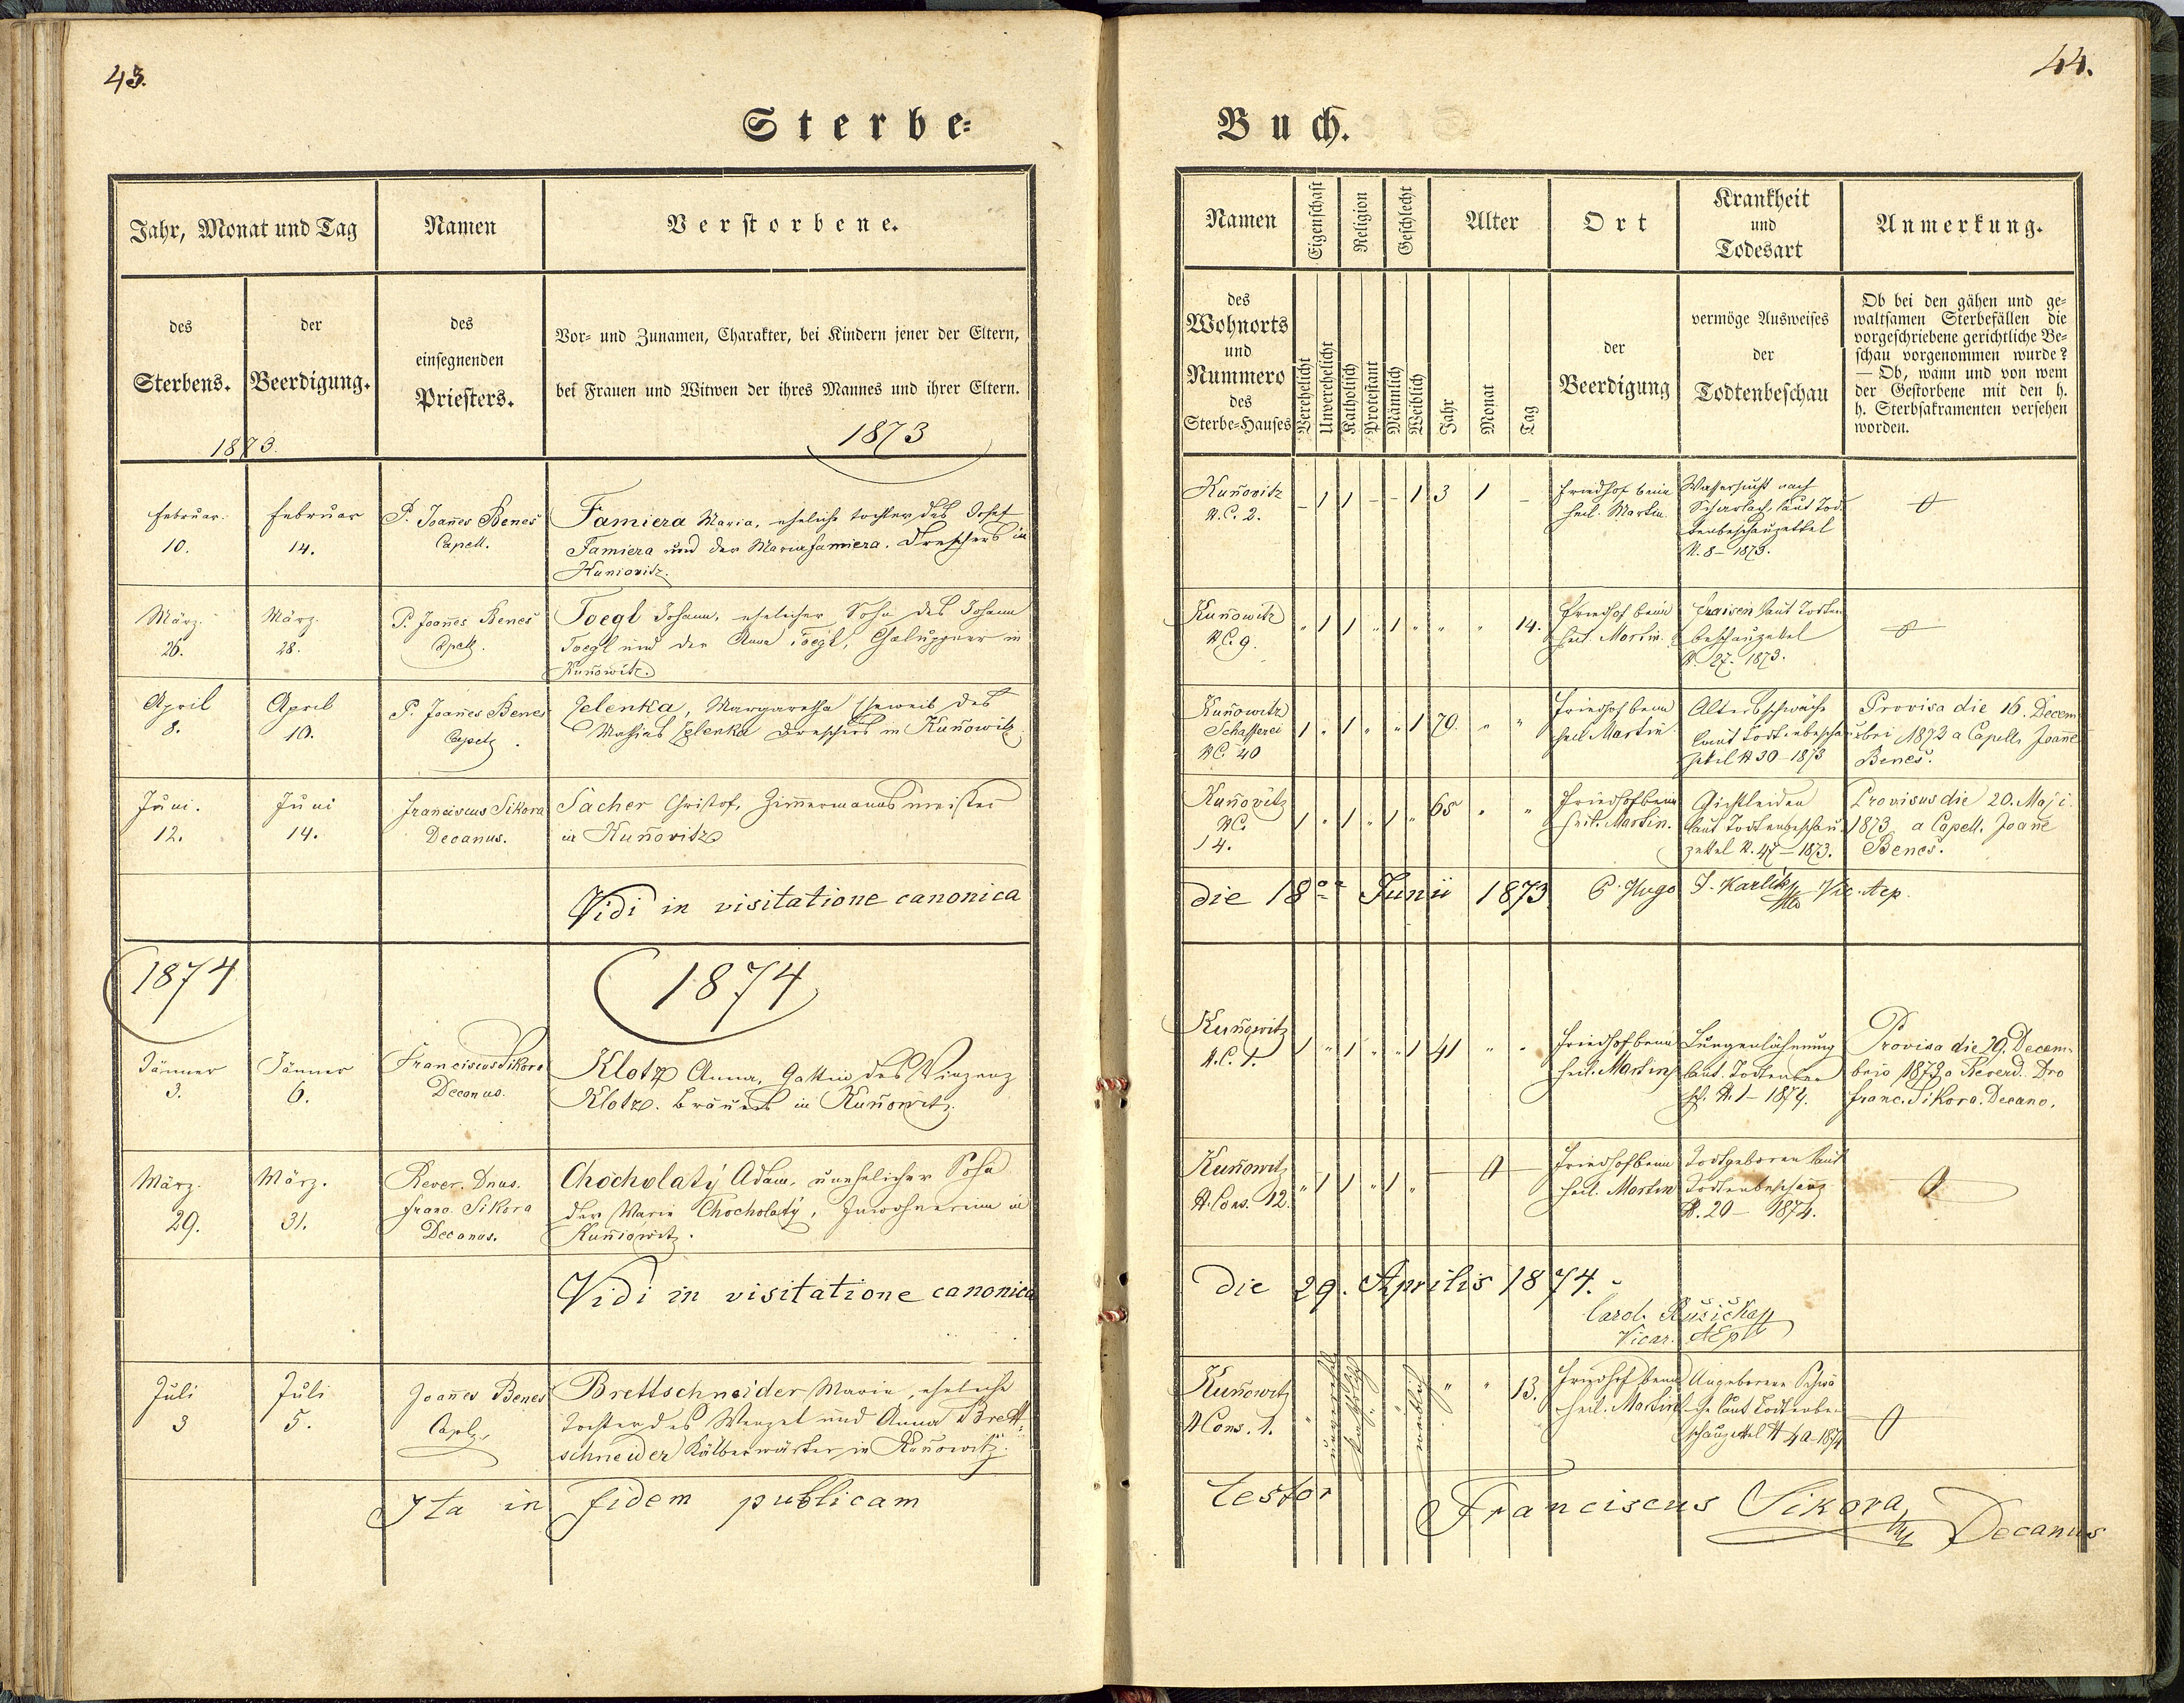 43.
Sterbe-
Jahr, Monat und Tag
Namen
Verstorbene.
des
Sterbens.
der
Beerdigung.
des
einsegnenden
Priesters.
Vor- und Zunamen, Charakter, bei Kindern jener der Eltern,
bei Frauen und Witwen der ihres Mannes und ihrer Eltern.
1873.
1873
Februar.
10.
Februar
14.
P. Joañes Benes
Capell.
Famiera Maria, eheliche Tochter des Josef
Famiera und der Maria Famiera. Dreschers in
Kuniovitz.
März.
26.
März.
28.
P. Joañes Benes
Capell.
Toegl Johann, ehelicher Sohn des Johann
Toegl und der Anna Toegl, Chaluppner in
Kuñowitz.
April
8.
April
10.
P. Joañes Benes
Capell.
Jelenka, Margaretha Eheweib des
Mathias Jelenka Dreschers in Kuñowitz.
Juni.
12.
Juni
14.
Franciscus Sikora
Decanus.
Sacher Christof, Zimmermannsmeister
in Kuñovitz
Vidi in visitatione canonica
1874
1874
Jänner
3.
Jänner
6.
Franciscus Sikora
Decanus.
Klotz Anna, Gattin des Vinzenz
Klotz. Bräuers in Kuñowitz.
März.
29.
März.
31.
Rever. Dnus.
Franc. Sikora
Decanus.
Chocholatý Adam, unehelicher Sohn
der Marie Chocholatý, Inwohnerin in
Kuniowitz.
Vidi in visitatione canonica
Juli
3
Juli
5.
Joañes Benes
Capl.
Brettschneider Marie, eheliche
Tochter des Wenzel und Anna Brett-
schneider Kälberwärter in Kuñowitz.
Ita in fidem publicam
44.
Buch.
Namen
Eigenschaft
Religion
Geschlecht
Alter
Ort
Krankheit
und
Todesart
Anmerkung.
des
Wohnorts
und
Nummero
des
Sterbe-Hauses
Verehelicht
Unverehelicht
Katholisch
Protestant
Männlich
Weiblich
Jahr
Monat
Tag
der
Beerdigung
vermöge Ausweises
der
Todtenbeschau
Ob bei den gähen und ge-
waltsamen Sterbefällen die
vorgeschriebene gerichtliche Be-
schau vorgenommen wurde?
— Ob, wann und von wem
der Gestorbene mit den h.
h. Sterbsakramenten versehen
worden.
Kuñovitz
N.C. 2.
– 1 1 – – 1 3 1 –
Friedhof beim
heil. Martin
Wassersucht nach
Scharlach, laut Tod-
tenbeschauzettel
N. 8 – 1873.
Kuñowitz
NC. 9.
" 1 1 " 1 " " " 14.
Friedhof beim
heil. Martin.
Fraisen laut Todten
beschauzettel
N. 27. 1873.
Kuñowitz
Schafferei
NC. 40
1 " 1 " " 1 70. " "
Friedhof beim
heil. Martin
Altersschwäche
laut Todtenbeschau
zettel N 30 – 1873
Provisa die 16. Decem
bri 1872 a Capell. Joanne
Benes.
Kuñovitz
NC.
14.
1 " 1 " 1 " 65 " "
Friedhof beim
heil. Martin.
Gichtleiden
laut Todtenbeschau
zettel N. 47 – 1873.
Provisus die 20. Maji
1873 a Capell. Joañe
Benes.
die 18va Junii 1873 P. Hugo J. Karlik Vic. Aep.
Kuñowitz
N.C. 1.
1 " 1 " " 1 41 " "
Friedhof beim
heil. Martin
Lungenlähmung
laut Todtenbe
sch. N. 1 – 1874.
Provisa die 29. Decem-
bris 1873 a Reverd. Dno
Franc. Sikora. Decano.
Kuñowitz
N. Cons. 12.
" 1 1 " 1 "
Friedhof beim
heil. Martin
Todtgeboren laut
Todtenbeschauz
N. 20 – 1874.
die 29. Aprilis 1874.
Carol. Růžička
Vicar. AEp
Kuñowitz
N Cons. 1.
katholisch
weiblich
" " 13.
Friedhof beim
heil. Martin
Angeborene Schwä
che laut Todtenbe-
schauzettel N 40-1874
testor Franciscus Sikora Decanus